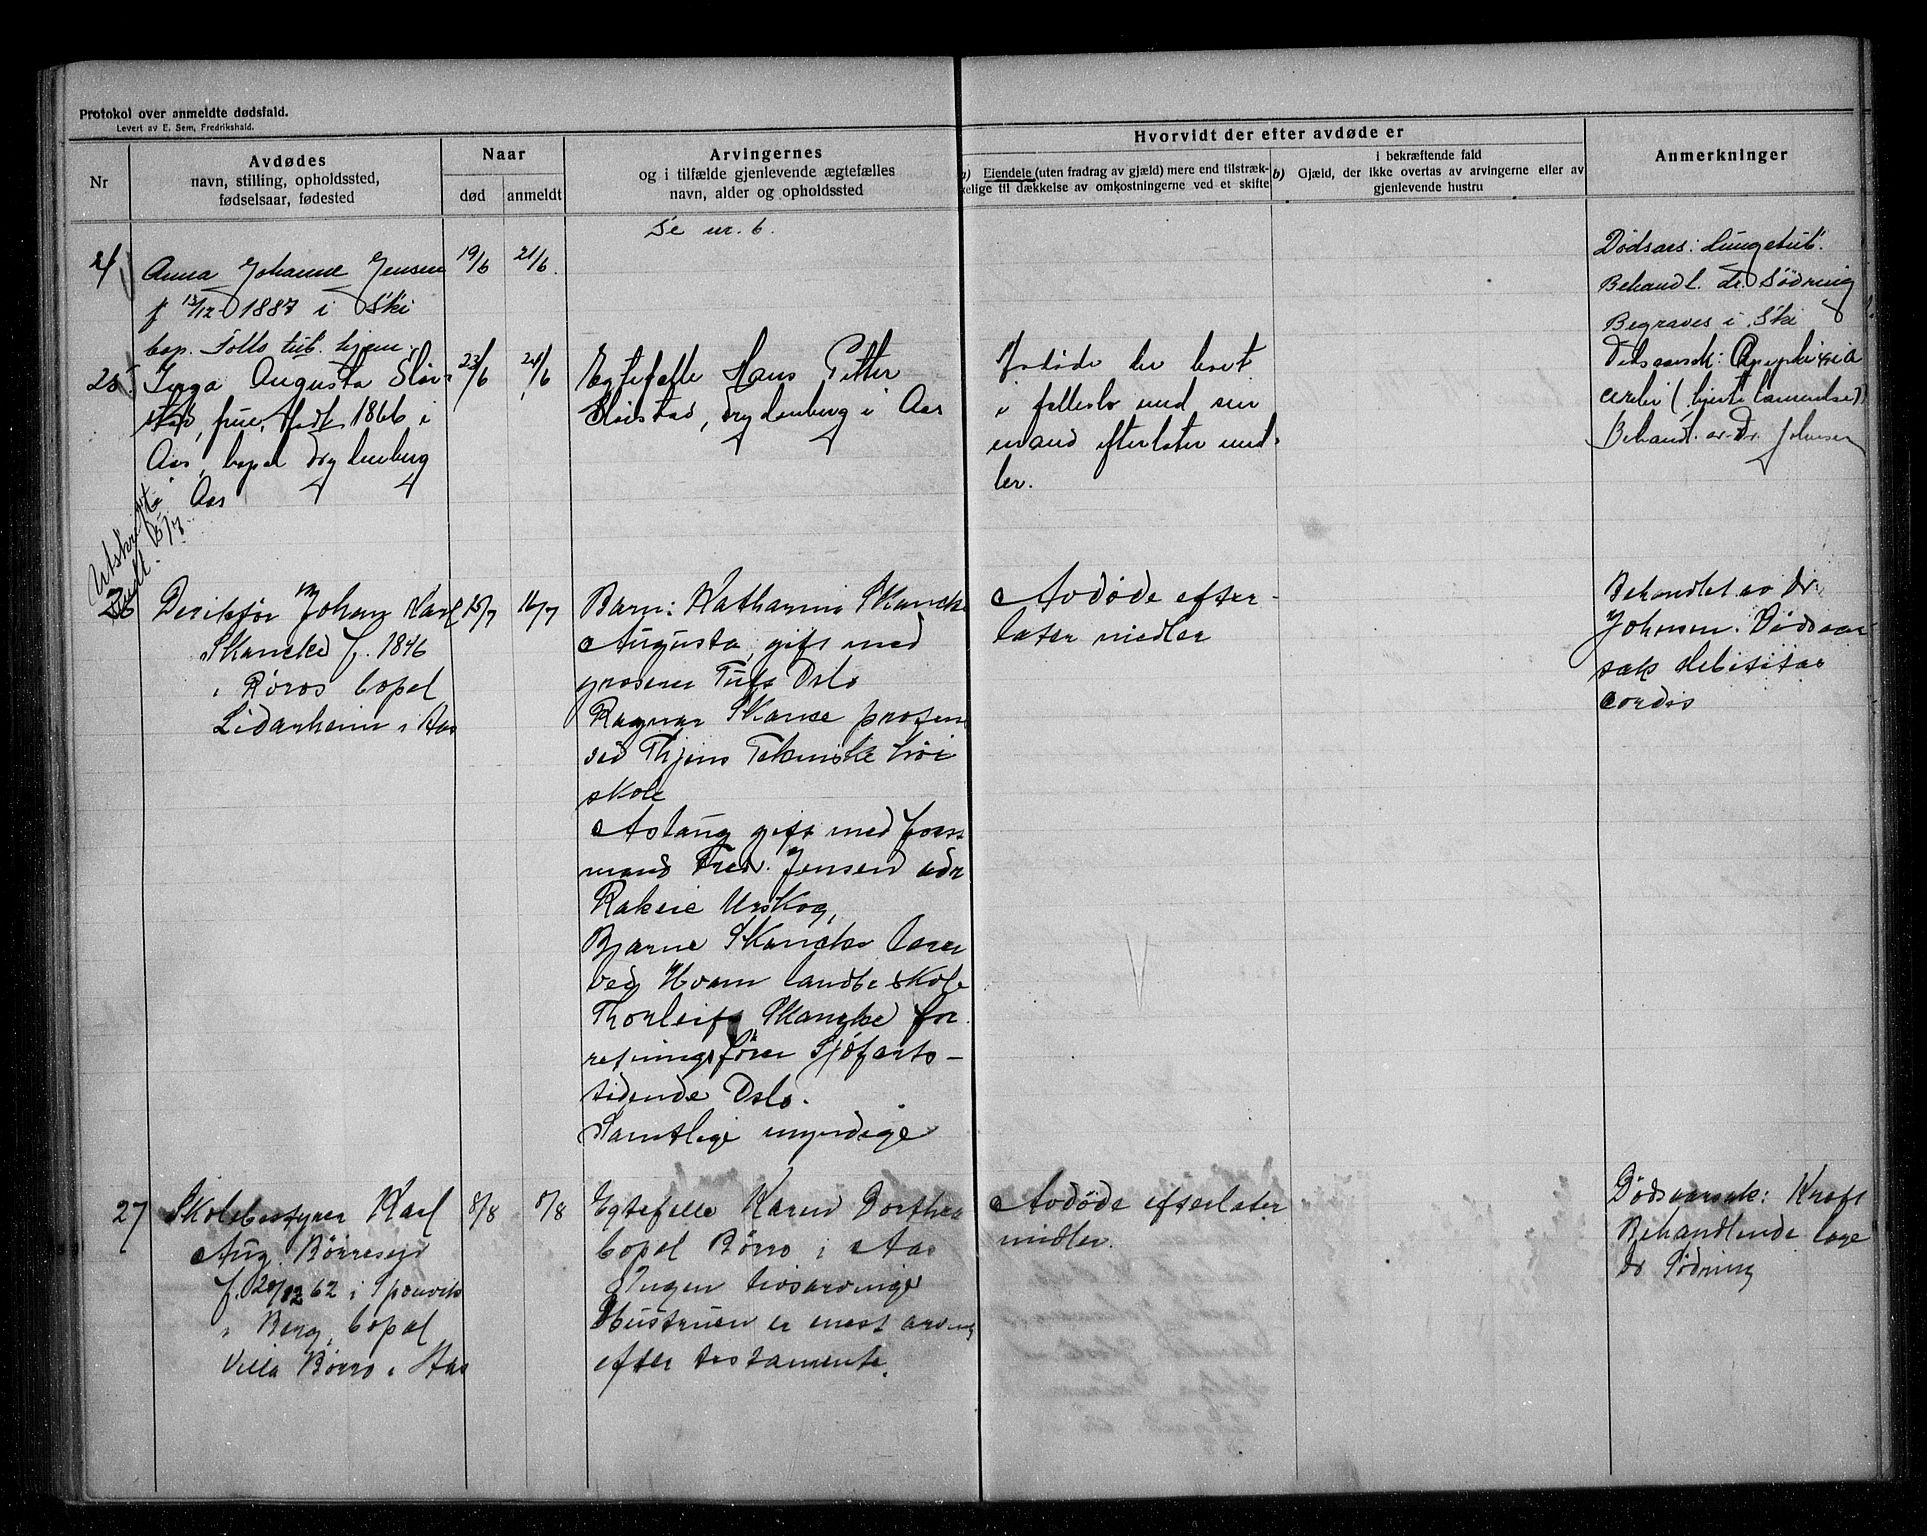 Protokol over anmeldte dødsfald.
Levert av E. Sem, Fredrikshald.
Nr
Avdødes
navn, stilling, opholdssted,
fødselsaar, fødested
Naar
død
anmeldt
Arvingernes
og i tilfælde gjenlevende ægtefælles
navn, alder og opholdssted
Hvorvidt der efter avdøde er
a) Eiendele (uten fradrag av gjæld) mere end tilstræk-
kelige til dækkelse av omkostningerne ved et skifte
i bekræftende fald
b) Gjæld, der ikke overtas av arvingerne eller av
gjenlevende hustru
Anmerkninger
Anna Johanne Jensen
f 13/12 1887 i Ski
bop. Follo tub. hjem.
19/6
21/6
Se nr. 6.
Dødsars: Lungetub.
Behandl. dr. Sødring
Begraves i Ski
25
Inga Augusta Slor-
stad, frue, født 1866 i
Aas, bopel Drylenberg
i Aas
23/6
24/6
Egtefelle Hans Petter
Slorstad, Drylenberg i Aas
Avdøde har levet
i felleslo med sin
mand efterlater mid-
ler.
Dødsaarsak:
cordis (hjertelammelse)
Behandl. av Dr. Johnsen
Utskrift
15/7
26
Direktør Johan Karl
Skancke f. 1846
i Røros bopel
Lidarheim i Aas
15/7
16/7
Barn: Katharina Skancke
Augusta, gift med
grosserer Oslo
Ragnar Skanke profes
ved Thjems Tekniske høi
skole
Aslaug gift med fors
mand Fred. Jensen adr
Rakeie Urskog,
Bjarne Skancke lærer
ved Hvam landbr skole
Thorleif Skancke for
retningsfører Sjøfarts-
tidende Oslo.
Samtlige myndige
Avdøde efter-
later midler
Behandlet av Dr.
Johnsen. Dødsaar
sak Debilitas
cordis
27
Skolebestyrer Karl
Aug. Børresen
f. 20/12 62 i
i Berg, bopel
Villa Børro i Aas
8/8
8/8
Egtefelle Karen Dorthea
bopel Børro i Aas
Ingen livsarvinger
Hustruen er enest arving
efter testamente.
Avdøde efterlater
midler.
Dødsaarsak: Kreft
Behandlende læge
dr Sødring